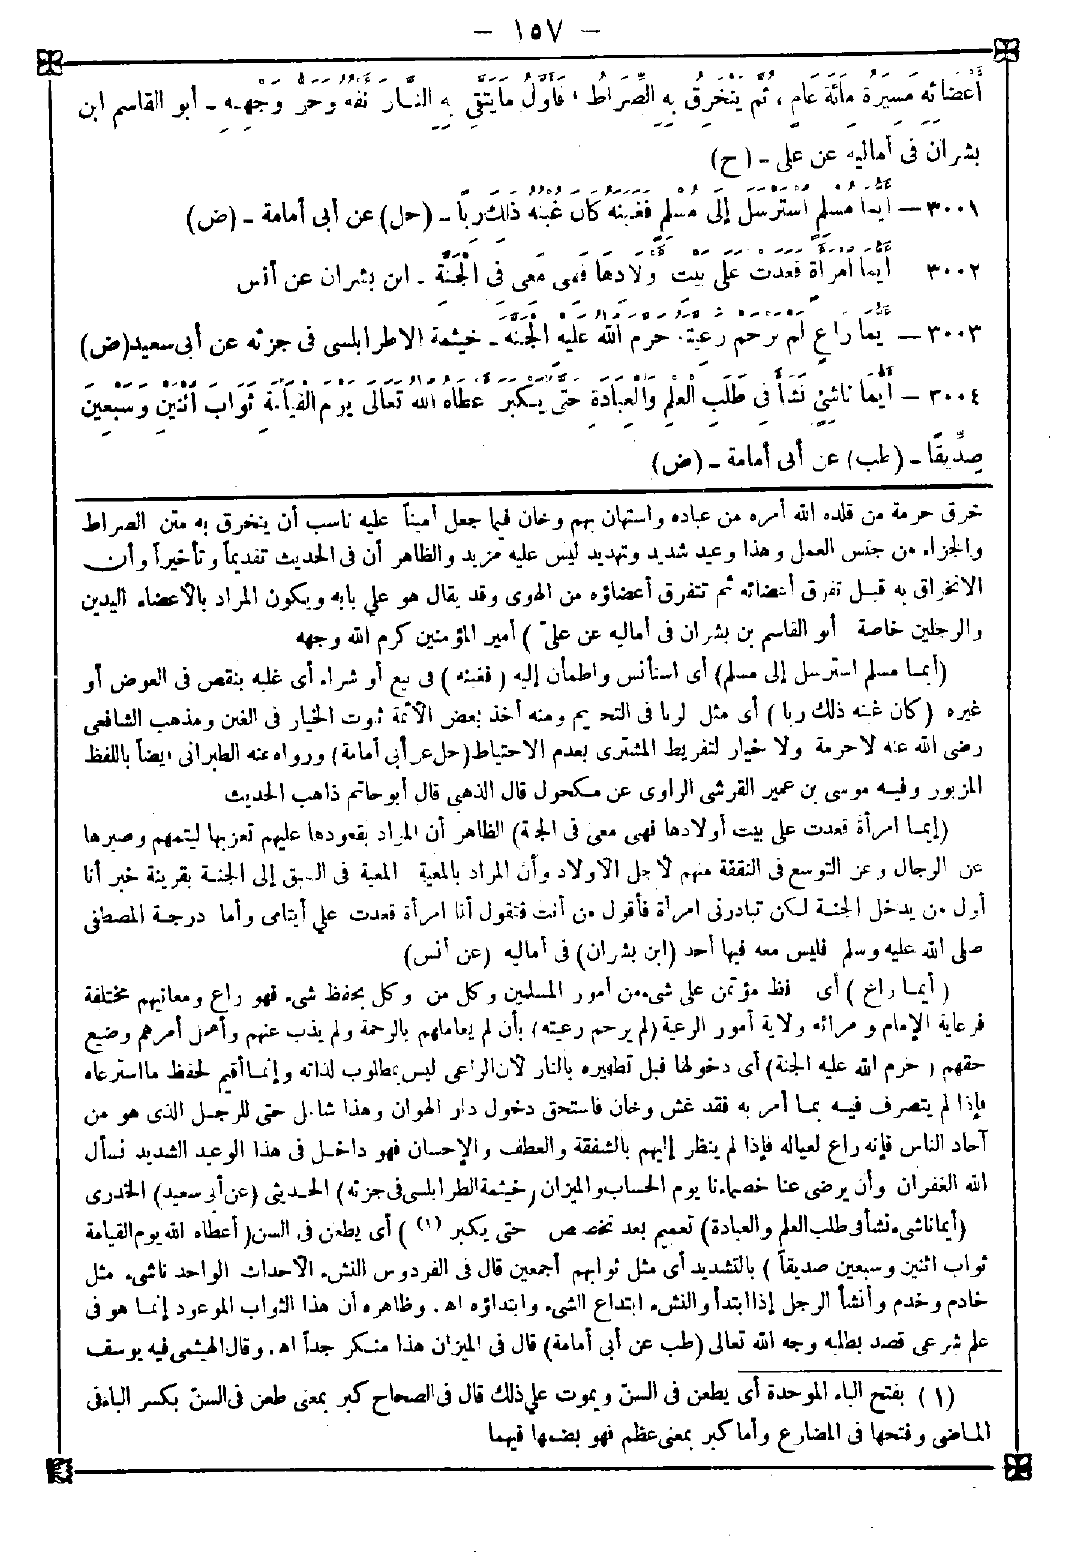 - ١٥٧ -
أَعْضَائِهِ مَسِيرَةُ مِائَةِ عَامٍ ، ثُمَّ يَنْخَرِقُ بِهِ الصِّرَاطُ ، فَأَوَّلُ مَا يَتَّقِي بِهِ النَّارَ أَنْفُهُ وَحُرُّ وَجْهِهِ - أبو القاسم ابن
بشران فى أماليه عن على - (ح)
٣٠٠١ - أَيُّمَا مُسْلِمٍ اسْتَرْسَلَ إِلَى مُسْلِمٍ فَغَبَنَهُ كَانَ غَبْنُهُ ذَلِكَ رِبًا - (حل) عن أبى أمامة - (ض)
٣٠٠٢ أَيُّمَا امْرَأَةٍ قَعَدَتْ عَلَى بَيْتِ أَوْلَادِهَا فَهِىَ مَعِى فِى الْجَنَّةِ - ابن بشران عن أنس
٣٠٠٣ - أَيُّمَا رَاعٍ لَمْ يَرْحَمْ رَعِيَّتَهُ حَرَّمَ اللهُ عَلَيْهِ الْجَنَّةَ - خيثمة الاطرابلسى فى جزئه عن أبى سعيد (ض)
٣٠٠٤ - أَيُّمَا نَاشِئٍ نَشَأَ فِى طَلَبِ الْعِلْمِ وَالْعِبَادَةِ حَتَّى يَكْبَرَ أَعْطَاهُ اللهُ تَعَالَى يَوْمَ الْقِيَامَةِ ثَوَابَ اثْنَيْنِ وَسَبْعِينَ
صِدِّيقًا - (طب) عن أبى أمامة - (ض)
خرق حرمة من قلده الله أمره من عباده واستهان بهم وخان فيما جعل أميناً عليه ناسب أن ينخرق به متن الصراط
والجزاء من جنس العمل وهذا وعيد شديد وتهديد ليس عليه مزيد والظاهر أن فى الحديث تقديماً وتأخيراً وأن
الانخراق به قبل تفرق أعضائه ثم تتفرق أعضاؤه من الهوى وقد يقال هو على بابه ويكون المراد بالأعضاء اليدين
والرجلين خاصة أبو القاسم بن بشران فى أماليه عن علىّ ) أمير المؤمنين كرم الله وجهه
(أيما مسلم استرسل إلى مسلم) أى استأنس واطمأن إليه ( فغبنه ) فى بيع أو شراء أى غلبه بنقص فى العوض أو
غيره (كان غبنه ذلك ربا ) أى مثل الربا فى التحريم ومنه أخذ بعض الأئمة ثبوت الخيار فى الغبن ومذهب الشافعى
رضى الله عنه لا حرمة ولا خيار لتفريط المشترى بعدم الاحتياط (حل عن أبى أمامة) ورواه عنه الطبرانى أيضاً باللفظ
المزبور وفيه موسى بن عمير القرشى الراوى عن مكحول قال الذهبى قال أبو حاتم ذاهب الحديث
(إيما امرأة قعدت على بيت أولادها فهى معى فى الجنة) الظاهر أن المراد بقعودها عليهم تعزبها ليتمهم وصبرها
عن الرجال وعن التوسع فى النفقة منهم لأجل الأولاد وأن المراد بالمعية المعية فى السبق إلى الجنة بقرينة خبر أنا
أول من يدخل الجنة لكن تبادرنى امرأة فأقول من أنت فتقول أنا امرأة قعدت على أيتامى وأما درجة المصطفى
صلى الله عليه وسلم فليس معه فيها أحد (ابن بشران) فى أماليه (عن أنس)
( أيما راع ) أى حافظ مؤتمن على شىء من أمور المسلمين وكل من وكل بحفظ شىء فهو راع ومعانيهم مختلفة
فرعاية الإمام ولاية أمور الرعية (لم يرحم رعيته) بأن لم يعاملهم بالرحمة ولم يذب عنهم وأهمل أمرهم وضيع
حقهم ( حرم الله عليه الجنة) أى دخولها قبل تطهيره بالنار لأن الراعى ليس بمطلوب لذاته وإنما أقيم لحفظ ما استرعاه
فإذا لم يتصرف فيه بما أمر به فقد غش وخان فاستحق دخول دار الهوان وهذا شامل حتى للرجل الذى هو من
آحاد الناس فإنه راع لعياله فإذا لم ينظر إليهم بالشفقة والعطف والإحسان فهو داخل فى هذا الوعيد الشديد نسأل
الله الغفران وأن يرضى عنا خصماءنا يوم الحساب والميزان (خيثمة الطرابلسى فى جزئه) الحديثى (عن أبى سعيد) الخدرى
(أيما ناشىء نشأ فى طلب العلم والعبادة) تعميم بعد تخصيص حتى يكبر (١) ) أى يطعن فى السن ( أعطاه الله يوم القيامة
ثواب اثنين وسبعين صديقاً ) بالتشديد أى مثل ثوابهم أجمعين قال فى الفردوس النشء الأحداث الواحد ناشىء مثل
خادم وخدم وأنشأ الرجل إذا ابتدأ والنشء ابتداع الشىء وابتداؤه اه. وظاهره أن هذا الثواب الموعود إنما هو فى
علم شرعى قصد بطلبه وجه الله تعالى (طب عن أبى أمامة) قال فى الميزان هذا منكر جداً اه. وقال الهيثمى فيه يوسف
(١) بفتح الباء الموحدة أى يطعن فى السنّ ويموت على ذلك قال فى الصحاح كبر بمعنى طعن فى السنّ بكسر الباء فى
الماضى وفتحها فى المضارع وأما كبر بمعنى عظم فهو بضمها فيهما